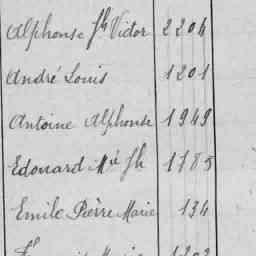 Alphonse Jh Victor 2204
André Louis 1201
Antoine Alphonse 1949
Edouard Mie Jh 1785
Emile Pierre Marie 134